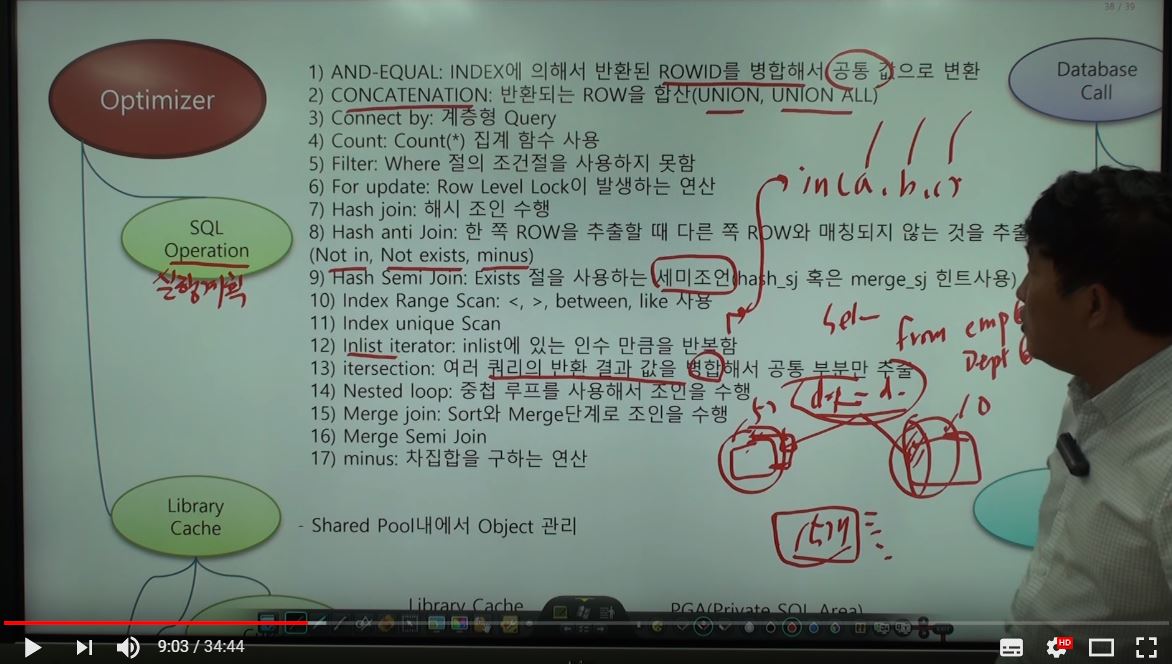 38 / 39
Optimizer
Database
Call
1) AND-EQUAL: INDEX에 의해서 반환된 ROWID를 병합해서 공통 값으로 변환
2) CONCATENATION: 반환되는 ROW을 합산(UNION, UNION ALL)
3) Connect by: 계층형 Query
4) Count: Count(*) 집계 함수 사용
5) Filter: Where 절의 조건절을 사용하지 못함
6) For update: Row Level Lock이 발생하는 연산
7) Hash join: 해시 조인 수행
8) Hash anti Join: 한 쪽 ROW을 추출할 때 다른 쪽 ROW와 매칭되지 않는 것을 추출
(Not in, Not exists, minus)
9) Hash Semi Join: Exists 절을 사용하는 세미조언(hash_sj 혹은 merge_sj 힌트사용)
10) Index Range Scan: <, >, between, like 사용
11) Index unique Scan
12) Inlist iterator: inlist에 있는 인수 만큼을 반복함
13) itersection: 여러 쿼리의 반환 결과 값을 병합해서 공통 부분만 추출
14) Nested loop: 중첩 루프를 사용해서 조인을 수행
15) Merge join: Sort와 Merge단계로 조인을 수행
16) Merge Semi Join
17) minus: 차집합을 구하는 연산
SQL
Operation
실행계획
in(a, b, c)
Sel
from emp
Dept
10
Library
Cache
- Shared Pool내에서 Object 관리
Library Cache
PGA(Private SQL Area)
9:03 / 34:44
HD